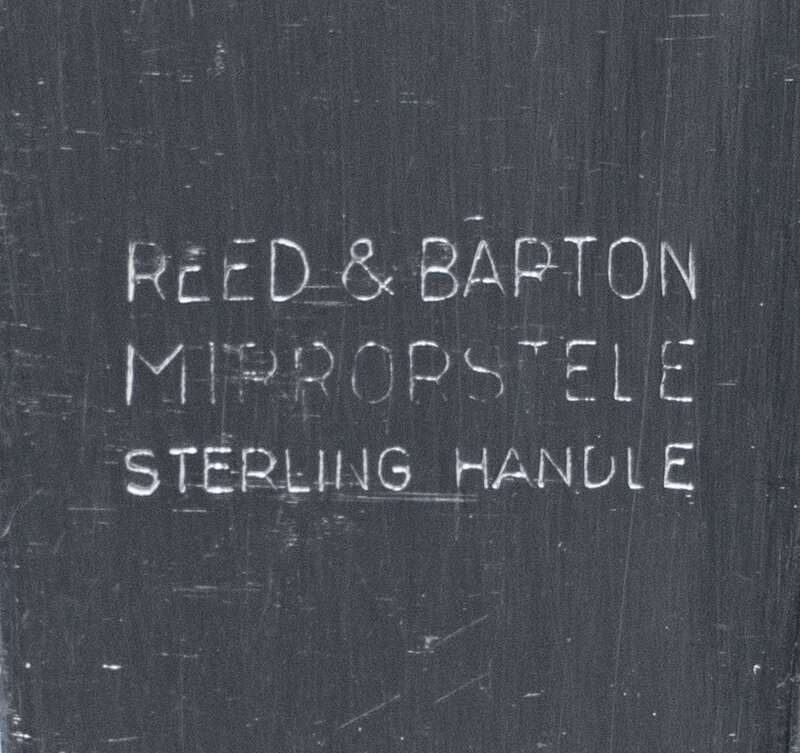 REED & BARTON
MIRRORSTELE
STERLING HANDLE